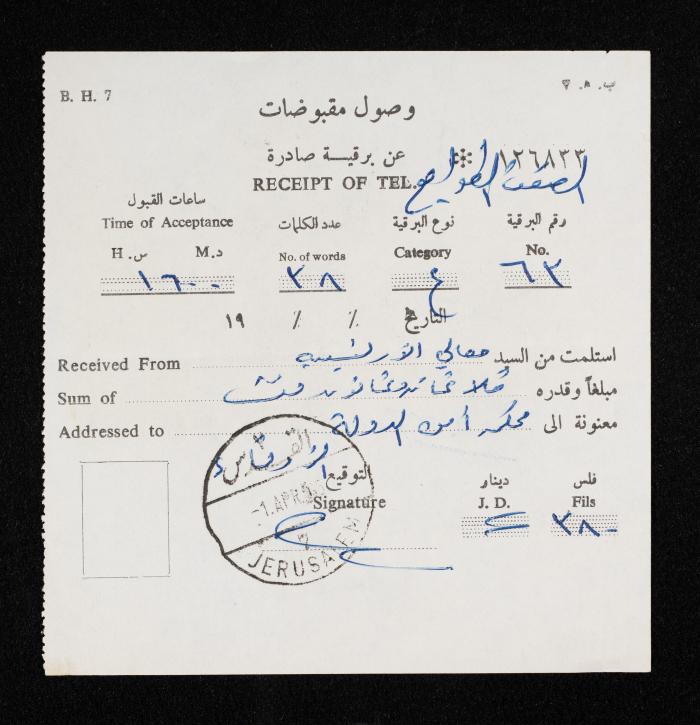 B. H. 7 ب. ه. ٧
وصول مقبوضات
عن برقية صادرة ١٢٦٨٣٣
RECEIPT OF TEL.
ساعات القبول عدد الكلمات نوع البرقية رقم البرقية
Time of Acceptance No. of words Category No.
س. H. د. M.
١٦٠٠ ٣٨ ع ٦٣
التاريخ / / ١٩
Received From استلمت من السيد معالي
Sum of مبلغاً وقدره فلس
Addressed to معنونة الى محكمة أمن الدولة
الزرقاء
القدس
-1.APR.
JERUSALEM
التوقيع دينار فلس
Signature J. D. Fils
٣٨٠